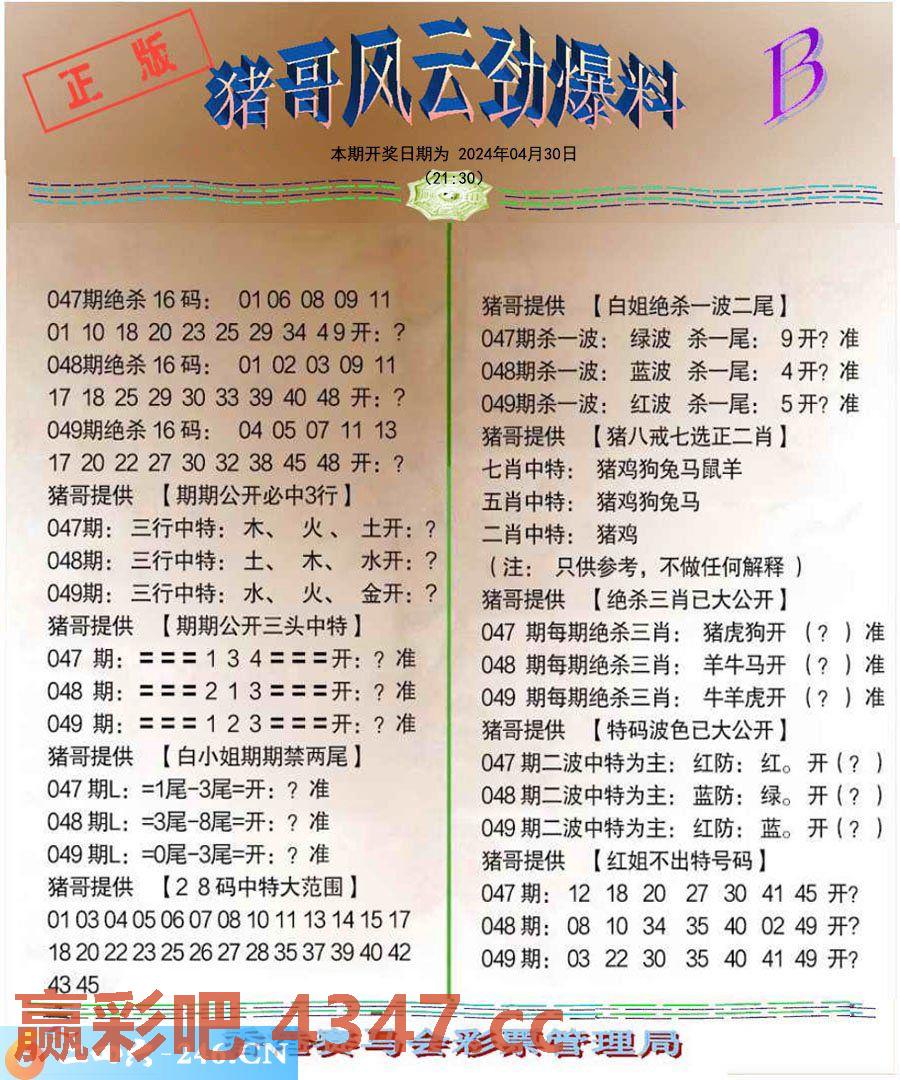 正版
猪哥风云劲爆料
B
本期开奖日期为 2024年04月30日
(21:30)
047期绝杀16码： 01 06 08 09 11
01 10 18 20 23 25 29 34 49开：？
048期绝杀16码： 01 02 03 09 11
17 18 25 29 30 33 39 40 48 开：？
049期绝杀16码： 04 05 07 11 13
17 20 22 27 30 32 38 45 48 开：？
猪哥提供 【期期公开必中3行】
047期：三行中特：木、 火、 土开：？
048期：三行中特：土、 木、 水开：？
049期：三行中特：水、 火、 金开：？
猪哥提供 【期期公开三头中特】
047 期：===134===开：？准
048 期：===213===开：？准
049 期：===123===开：？准
猪哥提供 【白小姐期期禁两尾】
047期L：=1尾-3尾=开：？准
048期L：=3尾-8尾=开：？准
049期L：=0尾-3尾=开：？准
猪哥提供 【28码中特大范围】
01 03 04 05 06 07 08 10 11 13 14 15 17
18 20 22 23 25 26 27 28 35 37 39 40 42
43 45
猪哥提供 【白姐绝杀一波二尾】
047期杀一波： 绿波 杀一尾： 9开？准
048期杀一波： 蓝波 杀一尾： 4开？准
049期杀一波： 红波 杀一尾： 5开？准
猪哥提供 【猪八戒七选正二肖】
七肖中特： 猪鸡狗兔马鼠羊
五肖中特： 猪鸡狗兔马
二肖中特： 猪鸡
（注： 只供参考，不做任何解释 ）
猪哥提供 【绝杀三肖已大公开】
047 期每期绝杀三肖： 猪虎狗开 （？）准
048 期每期绝杀三肖： 羊牛马开 （？）准
049 期每期绝杀三肖： 牛羊虎开 （？）准
猪哥提供 【特码波色已大公开】
047期二波中特为主：红防：红。开（？）
048期二波中特为主：蓝防：绿。开（？）
049期二波中特为主：红防：蓝。开（？）
猪哥提供 【红姐不出特号码】
047期：12 18 20 27 30 41 45 开?
048期：08 10 34 35 40 02 49 开?
049期：03 22 30 35 40 41 49 开?
赢彩吧 4347.cc
马会彩票管理局
-246.CN